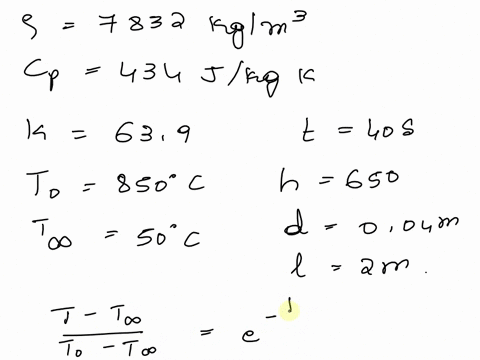 ρ = 7832 kg/m³
Cp = 434 J/kg K
k = 63.9 t = 40s
T₀ = 850°C h = 650
T∞ = 50°C d = 0.04m
l = 2m.
T - T∞ / T₀ - T∞ = e^-